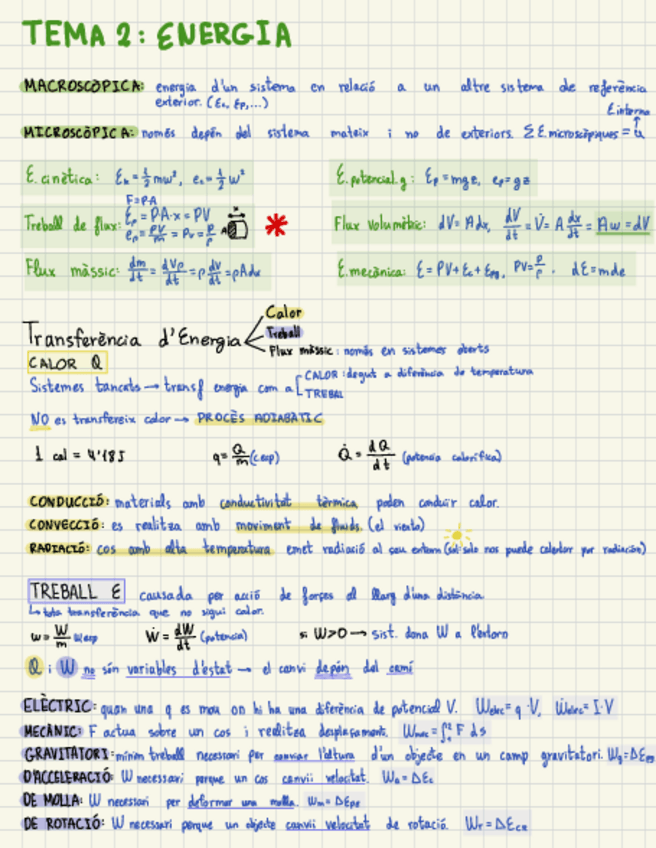 TEMA 2: ENERGIA
MACROSCÒPICA: energia d'un sistema en relació a un altre sistema de referència
exterior. (Ec, Ep,...)
E interna
↑
MICROSCÒPICA: només depèn del sistema mateix i no de exteriors. ΣE microscòpiques = u
E. cinètica: Ek = 1/2 mw², ec = 1/2 w²
E. potencial.g: Ep = mgz, ep = gz
F=P·A
Treball de flux: Ep = P·A·x = PV
ep = PV/m = Pv = P/ρ
x
A
Flux volumètric: dV = A dx, dV/dt = V̇ = A dx/dt = Aw = dV
Flux màssic: dm/dt = dVρ/dt = ρ dV/dt = ρA dx
E. mecànica: E = PV + Ec + Epg, PV = P/ρ. dE = m de
Transferència d'Energia
Calor
Treball
Flux màssic: només en sistemes oberts
CALOR Q
Sistemes tancats → transf energia com a
CALOR: degut a diferència de temperatura
TREBAL
NO es transfereix calor → PROCÈS ADIABÀTIC
1 cal = 4'18J
q = Q/m (esp)
Q̇ = dQ/dt (potència calorífica)
CONDUCCIÓ: materials amb conductivitat tèrmica poden conduir calor.
CONVECCIÓ: es realitza amb moviment de fluids. (el viento)
RADIACIÓ: cos amb alta temperatura emet radiació al seu entorn (sol solo nos puede calentar por radiación)
TREBALL E causada per acció de forçes al llarg d'una distància
↳ tota transferència que no sigui calor.
w = W/m W esp
Ẇ = dW/dt (potencia)
si W>0 → sist. dona W a l'entorn
Q i W no són variables d'estat → el canvi depèn del camí
ELÈCTRIC: quan una q es mou on hi ha una diferència de potencial V. Welec = q·V, Ẇelec = I·V
MECÀNIC: F actua sobre un cos i realitza desplaçament. Wmec = ∫ F ds
GRAVITATORI: mínim treball necessari per canviar l'altura d'un objecte en un camp gravitatori. Wg = ΔEpg
D'ACCELERACIÓ: W necessari perque un cos canvii velocitat. Wa = ΔEc
DE MOLLA: W necessari per deformar una molla. Wm = ΔEpe
DE ROTACIÓ: W necessari perque un objecte canvii velocitat de rotació. Wr = ΔEcr